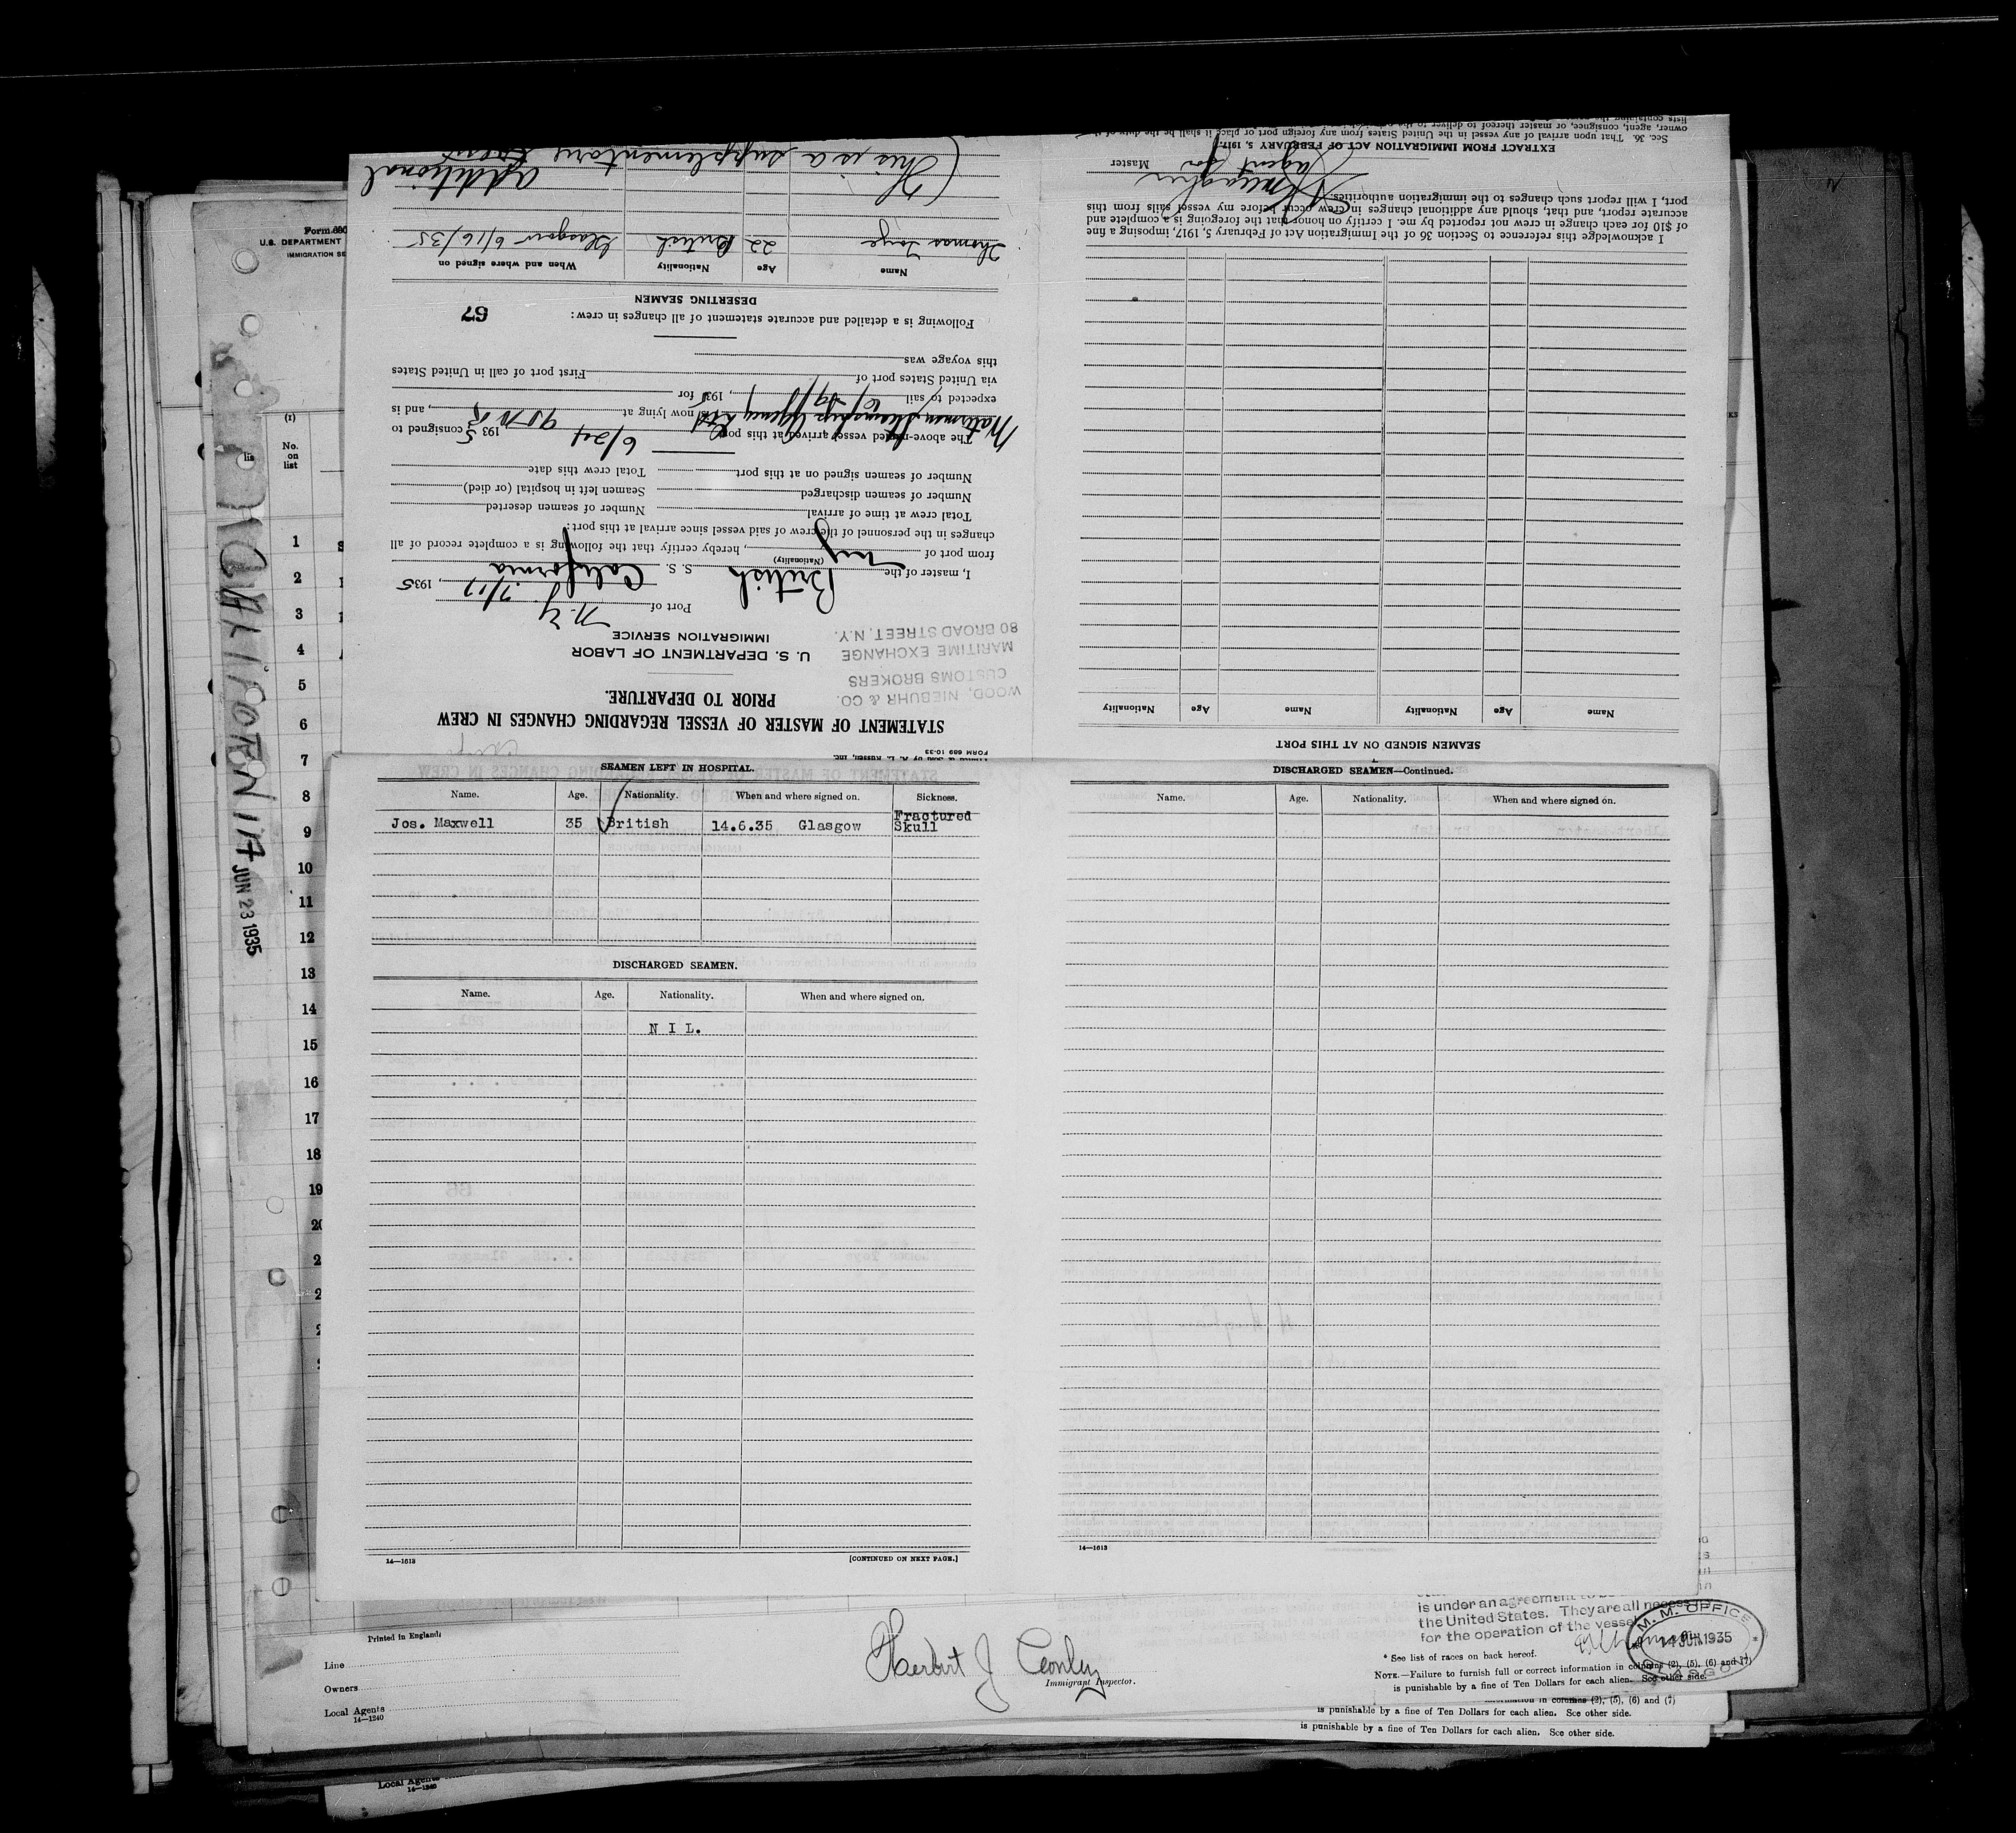 Form 680
U.S. DEPARTMENT
IMMIGRATION SE
(1)
No.
on
list
1
2
3
4
5
6
7
8
9
10
11
12
13
14
15
16
17
18
19
CALIFORNIA
JUN 23 1935
FORM 689 10-33
WOOD, NIEBUHR & CO.
CUSTOMS BROKERS
MARITIME EXCHANGE
80 BROAD STREET, N.Y.
STATEMENT OF MASTER OF VESSEL REGARDING CHANGES IN CREW
PRIOR TO DEPARTURE.
U. S. DEPARTMENT OF LABOR
IMMIGRATION SERVICE
Port of N.Y. 7/17, 1935
I, master of the British S. S. California
(Nationality)
from port of NY, hereby certify that the following is a complete record of all
changes in the personnel of the crew of said vessel since arrival at this port:
Total crew at time of arrival Number of seamen deserted
Number of seamen discharged Seamen left in hospital (or died)
Number of seamen signed on at this port Total crew this date
The above-named vessel arrived at this port 6/24 1935 consigned to
Steamship Agency Ltd now lying at 95 N R, and is
expected to sail, 1935 for
via United States port of First port of call in United States
this voyage was
Following is a detailed and accurate statement of all changes in crew:
67
DESERTING SEAMEN
Name Age Nationality When and where signed on
Thomas Toye 22 British Glasgow 6/16/35
(This is a supplementary
additional
SEAMEN SIGNED ON AT THIS PORT
Name Age Nationality Name Age Nationality
I acknowledge this reference to Section 36 of the Immigration Act of February 5, 1917, imposing a fine
of $10 for each change in crew not reported by me. I certify on honor that the foregoing is a complete and
accurate report, and that, should any additional changes in crew occur before my vessel sails from this
port, I will report such changes to the immigration authorities.
agent for Master
EXTRACT FROM IMMIGRATION ACT OF FEBRUARY 5, 1917.
Sec. 36. That upon arrival of any vessel in the United States from any foreign port or place it shall be the duty of the
owner, agent, consignee, or master thereof to deliver to the
lists containing the
SEAMEN LEFT IN HOSPITAL.
Name. Age. Nationality. When and where signed on. Sickness.
Jos. Maxwell 35 British 14.6.35 Glasgow Fractured
Skull
DISCHARGED SEAMEN.
Name. Age. Nationality. When and where signed on.
N I L.
14—1613
[CONTINUED ON NEXT PAGE.]
DISCHARGED SEAMEN—Continued.
Name. Age. Nationality. When and where signed on.
14—1613
Printed in England.
Line
Owners
Local Agents
14—1240
Herbert J Conley
Immigrant Inspector.
is under an agreement to
the United States. They are all necess
for the operation of the vessel
M. M. OFFICE
14 JUN 1935
GLASGOW
* See list of races on back hereof.
NOTE.—Failure to furnish full or correct information in columns (2), (5), (6) and (7)
is punishable by a fine of Ten Dollars for each alien. See other side.
information in columns (2), (5), (6) and (7)
is punishable by a fine of Ten Dollars for each alien. See other side.
is punishable by a fine of Ten Dollars for each alien. See other side.
Local Agents
14—1240